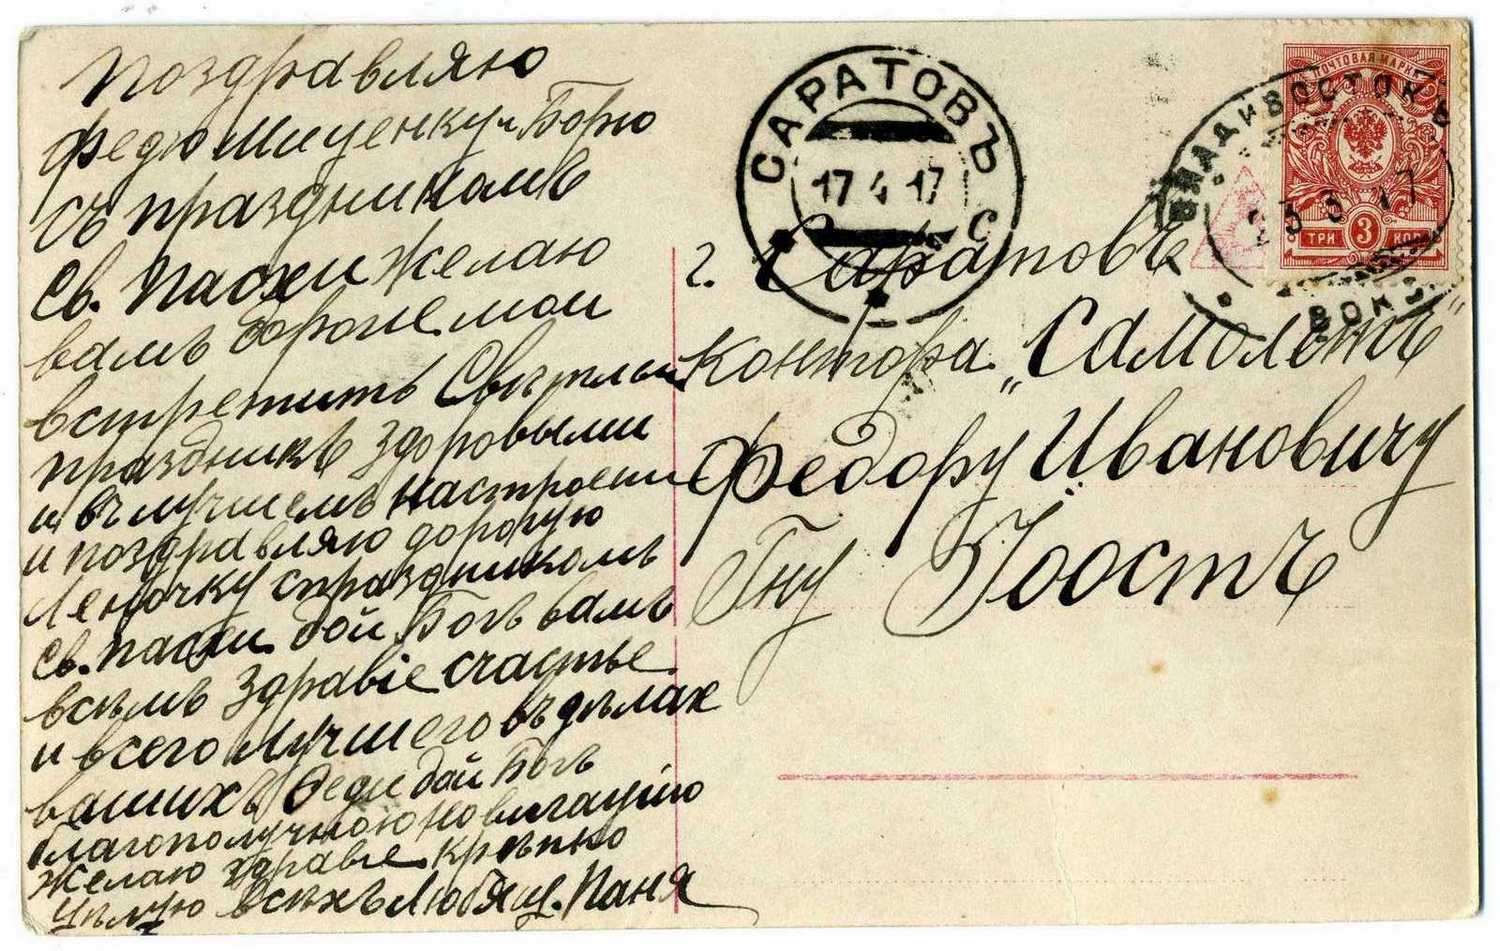 Поздравляю
Федю Миценку и Борю
съ праздникамъ
Св. Пасхи желаю
вамъ дорогие мои
встретить Светлый
праздникъ здоровыми
и въ лучшемъ настроении
и поздравляю дорогую
Леночку с праздникомъ
Св. Пасхи дай Богъ вамъ
всѣмъ здравіе счастье
и всего лучшего въ дѣлах
вашихъ Феди дай Богъ
благополучною новигацию
желаю здравіе крѣпко
цѣлую всѣхъ Любящ. Паня
САРАТОВЪ
17 4 17
С
ПОЧТОВАЯ МАРКА
ТРИ 3 КОП
ВЛАДИВОСТОКЪ
23 3 17
ВОКЗ
г. Саратовъ
контора „Самолетъ"
Федору Ивановичу
Гну Гоостъ